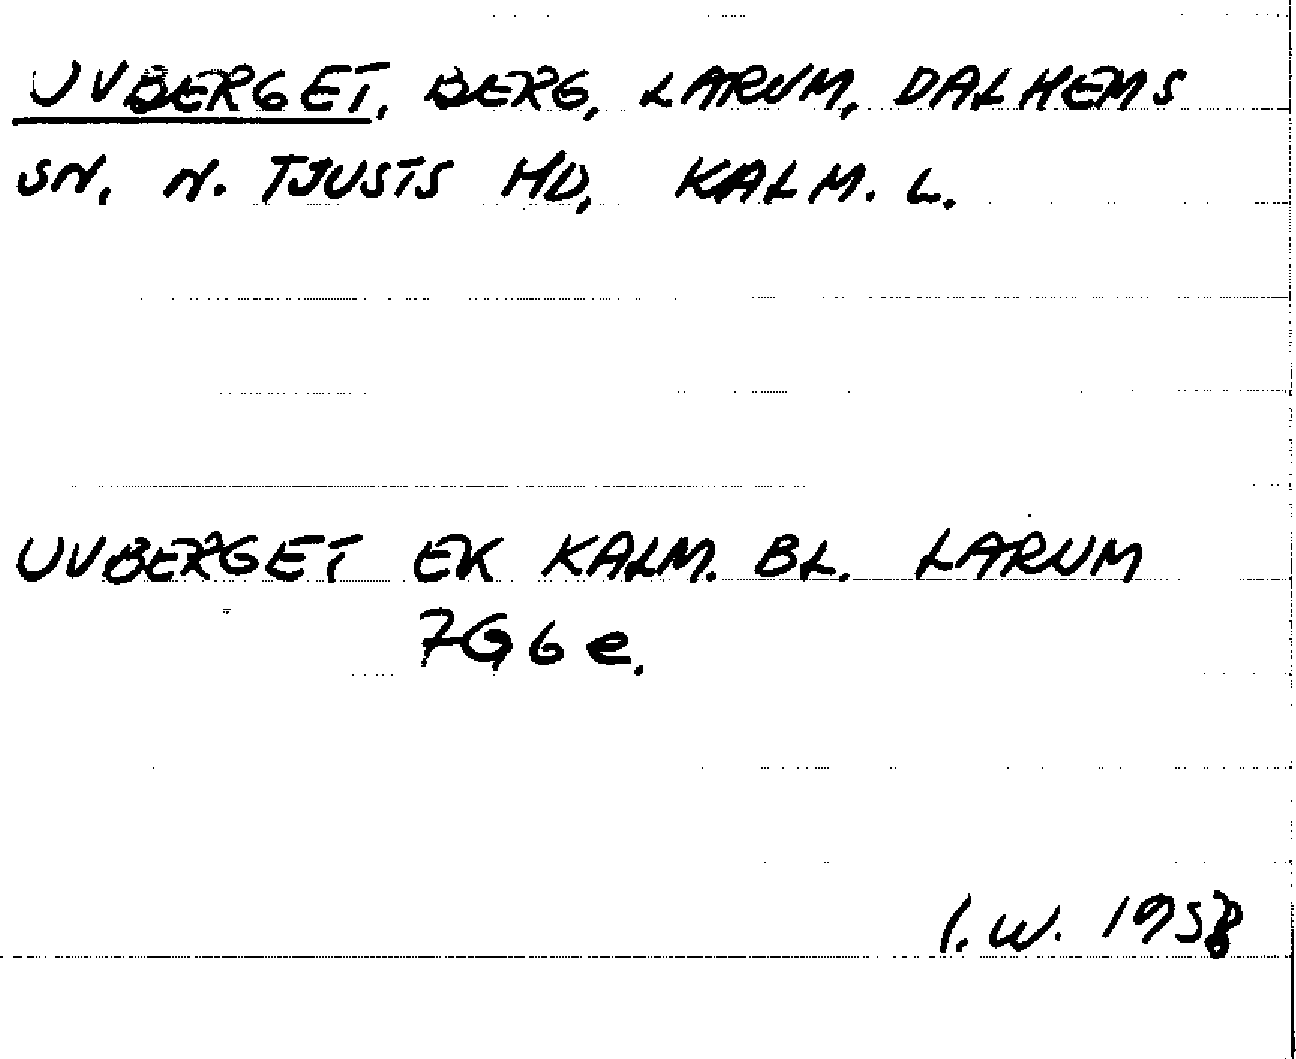 UVBERGET, BERG, LARUM, DALHEMS
SN, N. TJUSTS HD, KALM. L.
UVBERGET EK KALM. BL. LARUM
7G6e.
I.W. 1958